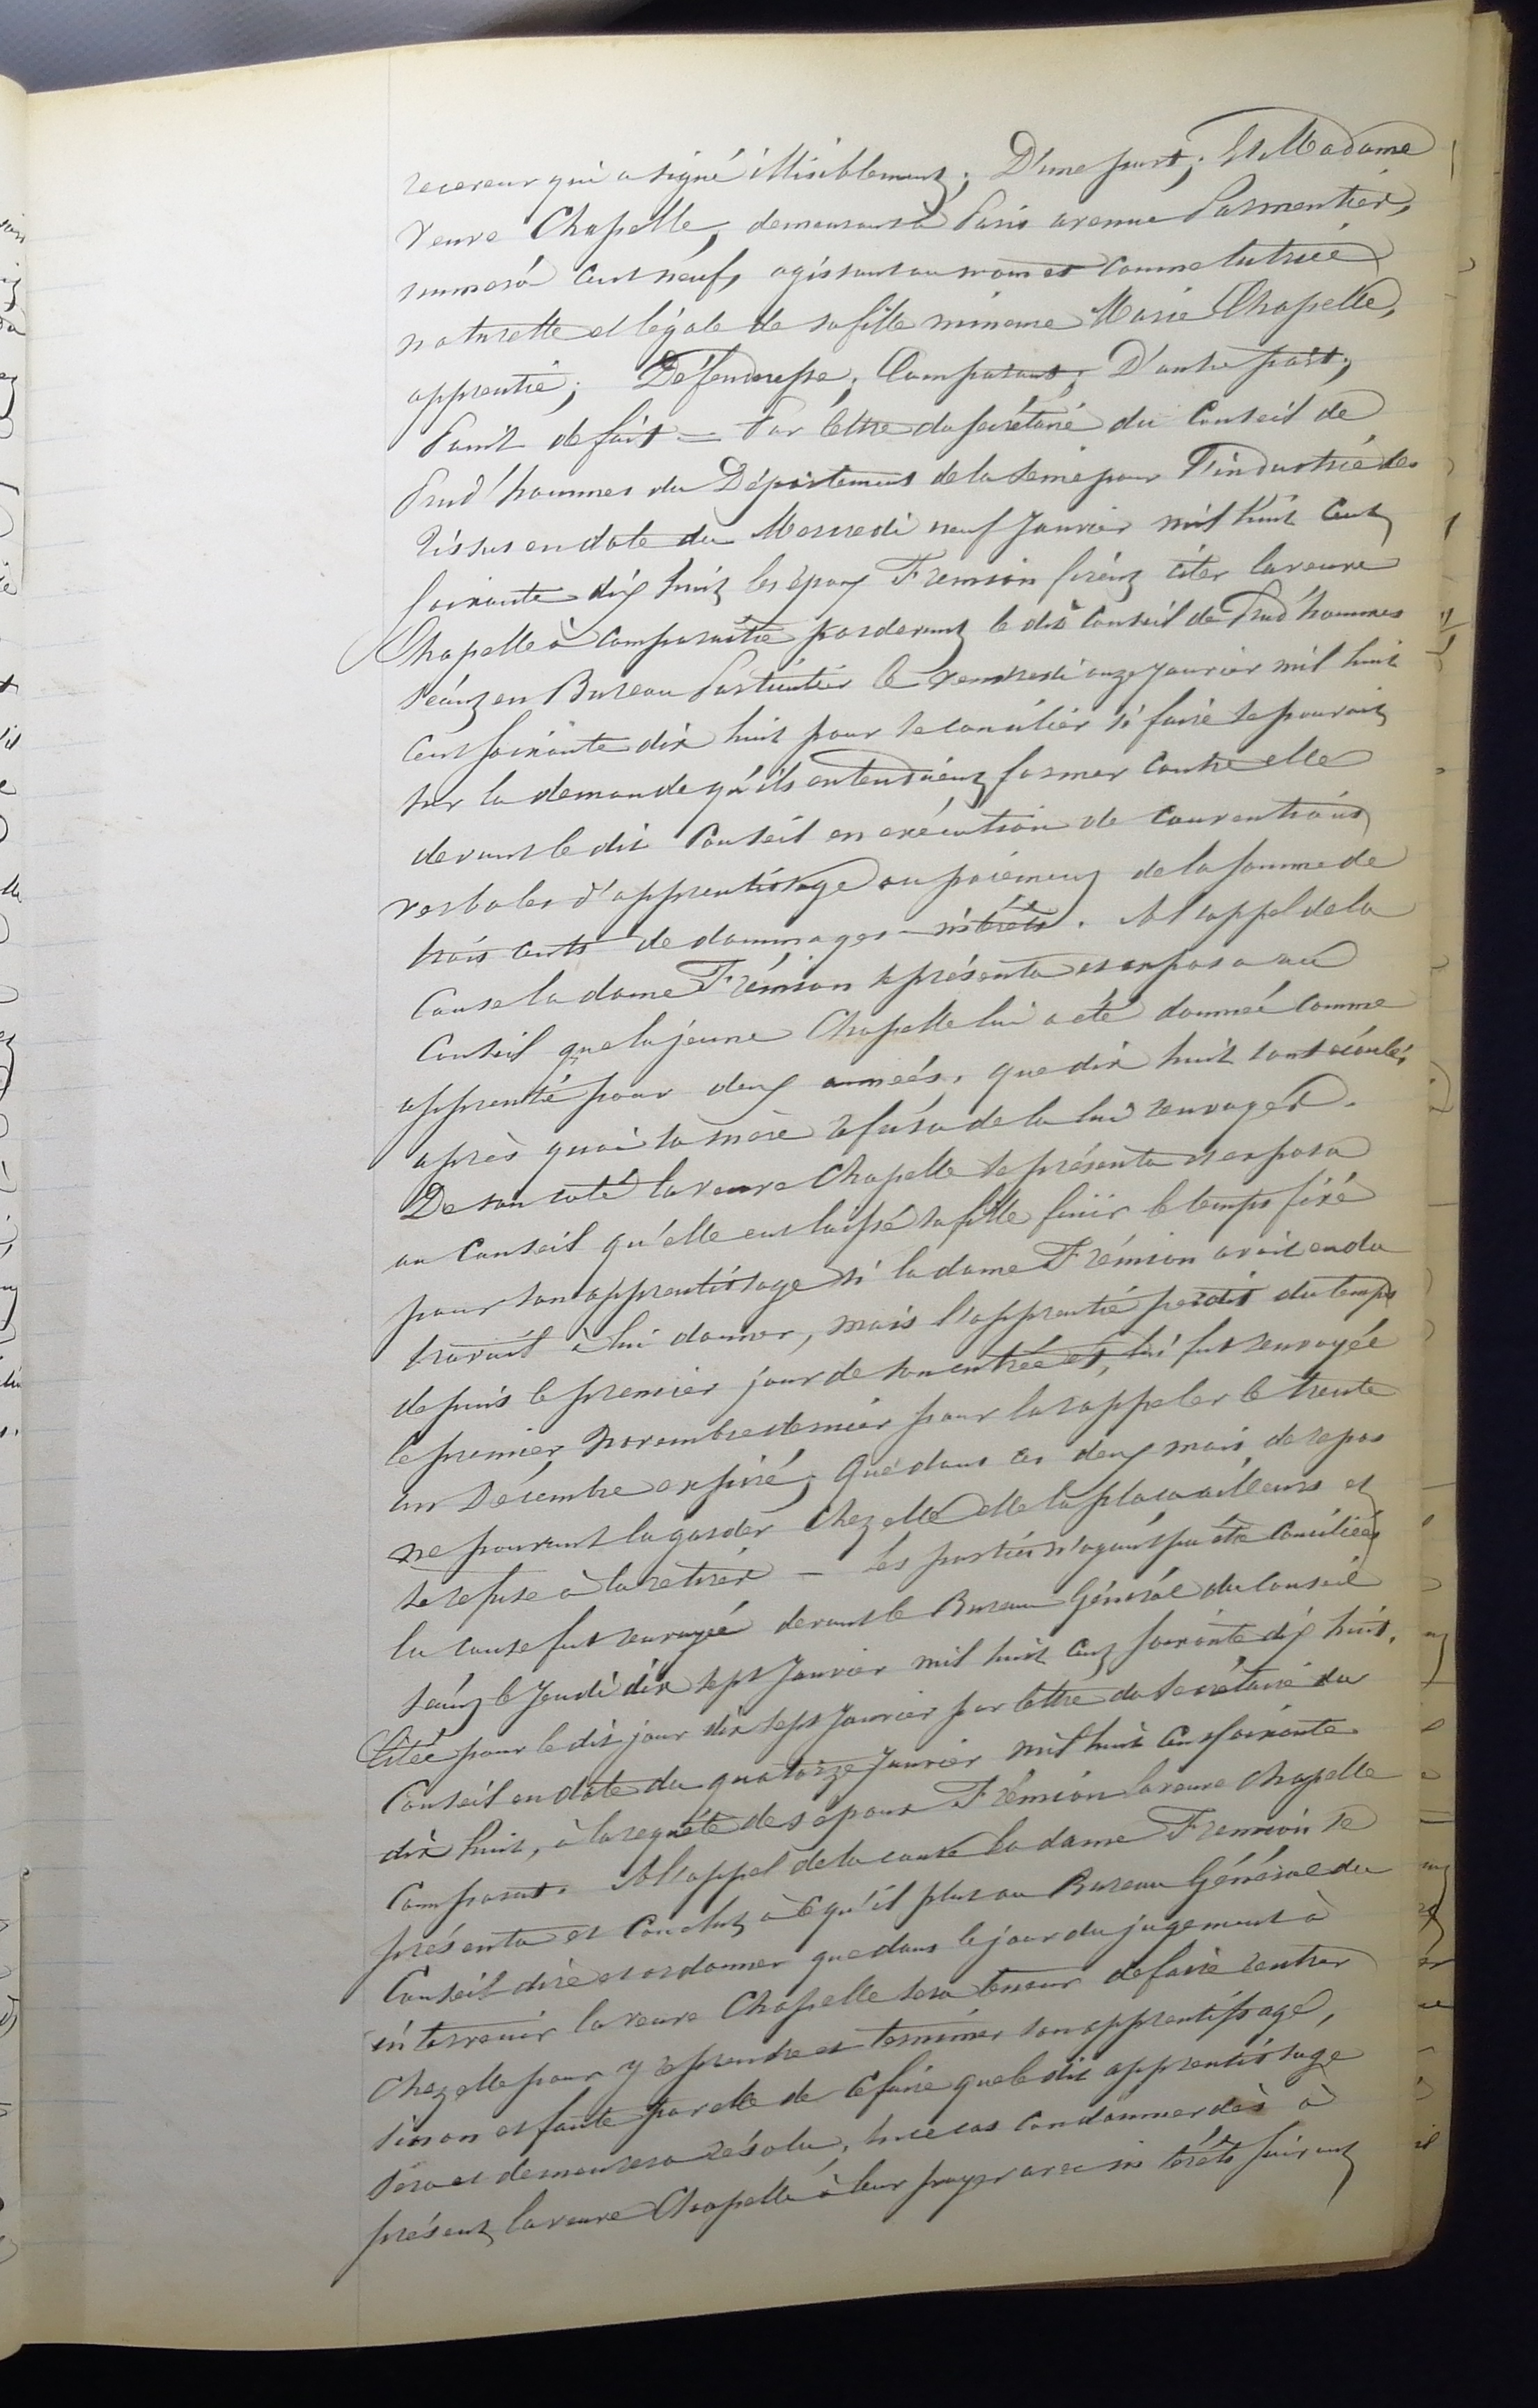 receveur qui a signé illisiblement; D'une part; Et Madame
veuve Chapelle, demeurant à Paris avenue Parmentier,
numéro cent neuf, agissant au nom et comme tutrice
naturelle et légale de sa fille mineure Marie Chapelle,
apprentie; Défenderesse; Comparant; D'autre part;
Point de fait = Par lettre du secrétaire du Conseil de
Prud'hommes du Département de la Seine pour l'industrie des
tissus en date du Mercredi neuf Janvier mil huit cent
soixante dix huit les époux Fremion firent citer la veuve
Chapelle à comparaitre par devant le dit Conseil de Prud'hommes
séant en Bureau Particulier le vendredi onze Janvier mil huit
cent soixante dix huit pour se concilier si faire se pouvait
sur la demande qu'ils entendaient former contre elle
devant le dit Conseil en exécution de conventions
verbales d'apprentissage ou paiement de la somme de
trois cents de dommages-intérêts. A l'appel de la
cause la dame Frémion se présenta et exposa au
Conseil que la jeune Chapelle lui a été donnée comme
apprentie pour deux années, que dix huit sont écoulés,
après quoi sa mère refusa de la lui renvoyer.
De son coté la veuve Chapelle se présenta et exposa
au Conseil qu'elle eut laissé sa fille finir le temps fixé
pour son apprentissage si la dame Frémion avait eu du
travail à lui donner, mais l'apprentie perdit du temps
depuis le premier jour de son entrée et, lui fut renvoyée
le premier Novembre dernier pour la rappeler le trente
un Décembre expiré; Que dans ces deux mois de repos
ne pouvant la garder chez elle elle la plaça ailleurs et
se refuse à la retirer — Les parties n'ayant pu être conciliées
la cause fut renvoyée devant le Bureau Général du Conseil
séant le Jeudi dix sept Janvier mil huit cent soixante dix huit.
Citée pour le dit jour dix sept Janvier par lettre du secrétaire du
Conseil en date du quatorze Janvier mil huit cent soixante
dix huit, à la requête des époux Frémion la veuve Chapelle
comparut. A l'appel de la cause la dame Fremion se
présenta et conclut à ce qu'il plut au Bureau Général du
Conseil dire et ordonner que dans le jour du jugement à
intervenir la veuve Chapelle sera tenue de faire rentrer
chez elle pour y reprendre et terminer son apprentissage,
sinon et faute par elle de ce faire que le dit apprentissage
sera et demeurera résolu, en ce cas condamner dès à
présent la veuve Chapelle à leur payer avec intérêts suivant